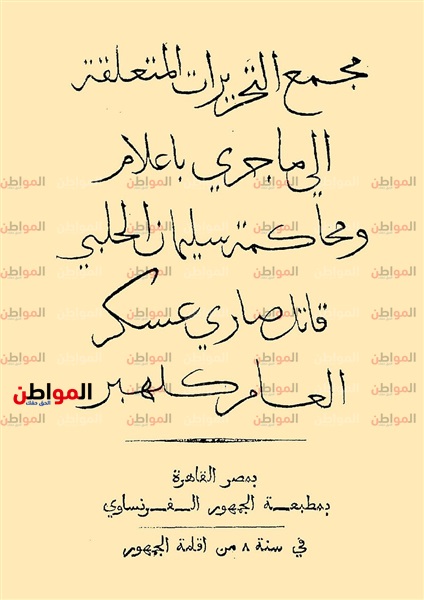 مجمع التحريرات المتعلقة
الي ما جري باعلام
ومحاكمة سليمان الحلبي
قاتل صاري عسكر
العام كلهبر
المواطن
الحق حقك
بمصر القاهرة
بمطبعة الجمهور الفرنساوي
في سنة ٨ من اقامة الجمهور